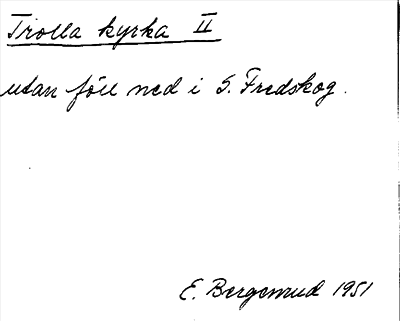 Trolla kyrka II
utan föll ned i S. Fredskog.
E. Bergemrud 1951